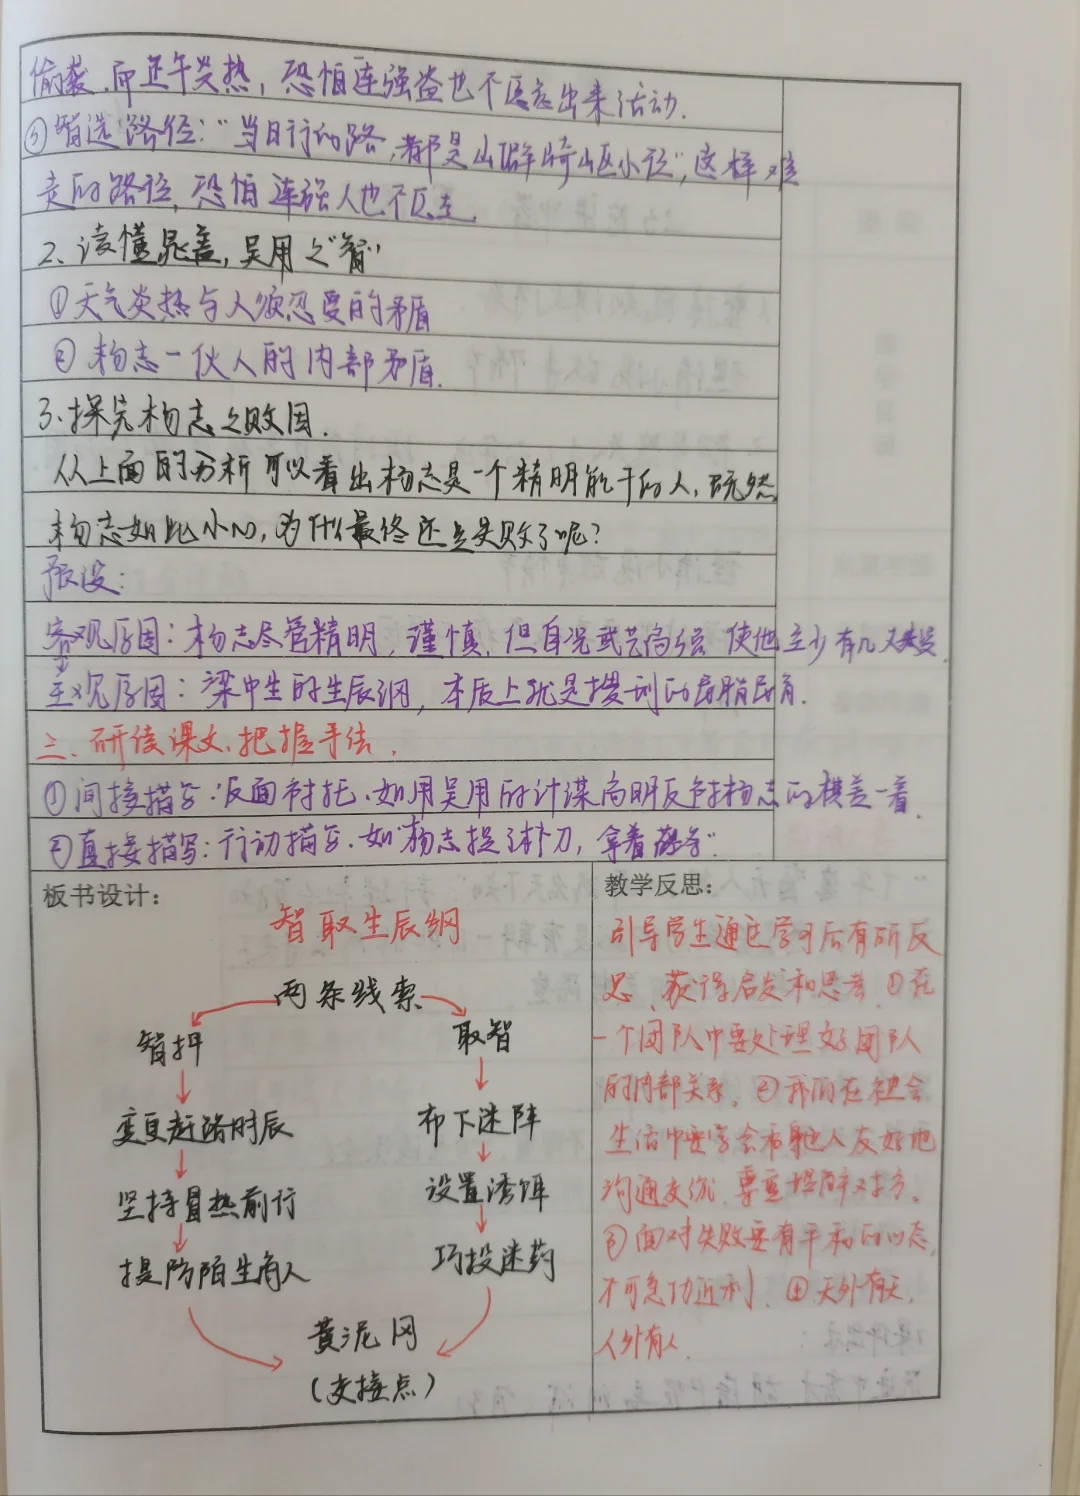 偷袭，而正午炎热，恐怕连强盗也不愿意出来活动.
⑤智选路径：“当日行的路，都是山僻崎岖小径”，这样难
走的路径，恐怕连强人也不愿走.
2、读懂晁盖，吴用之“智”
①天气炎热与人欲忍受的矛盾
②杨志一伙人的内部矛盾.
3、探究杨志之败因.
从上面的分析可以看出杨志是一个精明能干的人，既然
杨志如此小心，为什么最终还是失败了呢？
预设：
客观原因：杨志尽管精明，谨慎，但自况武艺高强 使他至少有几
主观原因：梁中生的生辰纲，本质上就是搜刮的民脂民膏.
三、研读课文、把握手法.
①间接描写：反面衬托、如用吴用的计谋高明反衬杨志的棋差一着.
②直接描写：行动描写、如“杨志提了朴刀，拿着藤条”
板书设计：
智取生辰纲
两条线索
智押 取智
变更赶路时辰 布下迷阵
坚持冒热前行 设置诱饵
提防陌生商人 巧投迷药
黄泥冈
（交接点）
教学反思：
引导学生通过学习后有所反
思、获得启发和思考.①在
一个团队中要处理好团队
的内部关系.②我们在社会
生活中要学会和他人友好地
沟通交流.要理解对方.
③面对失败要有平和的心态，
不可急功近利.④天外有天，
人外有人.